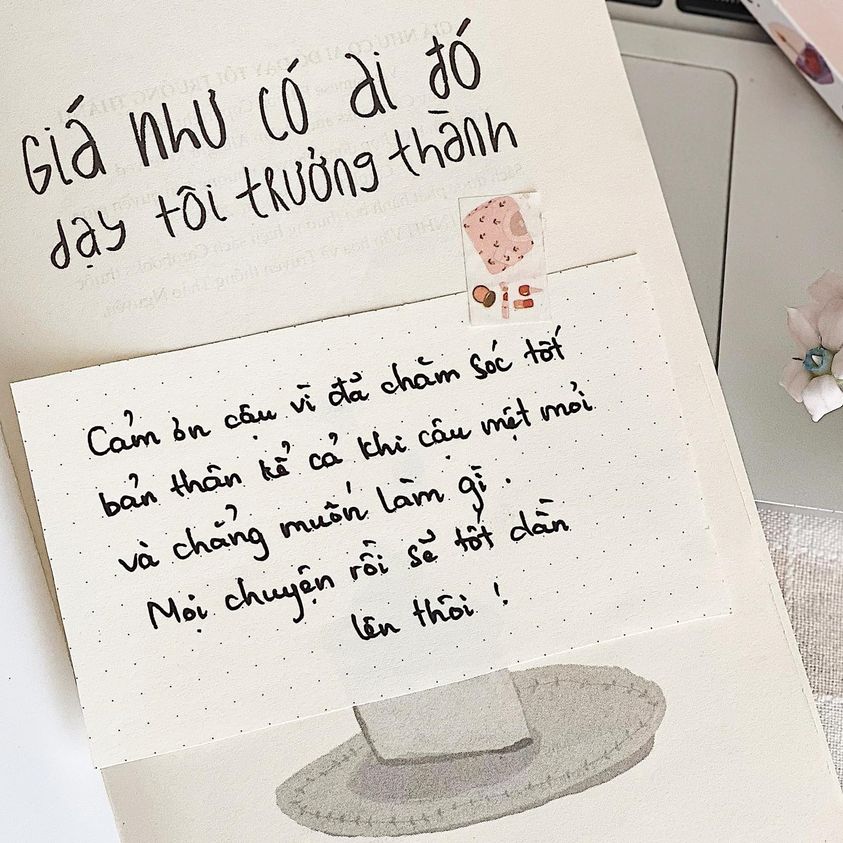 Giá như có ai đó
dạy tôi trưởng thành
Cảm ơn cậu vì đã chăm sóc tốt
bản thân kể cả khi cậu mệt mỏi
và chẳng muốn làm gì.
Mọi chuyện rồi sẽ tốt dần
lên thôi!